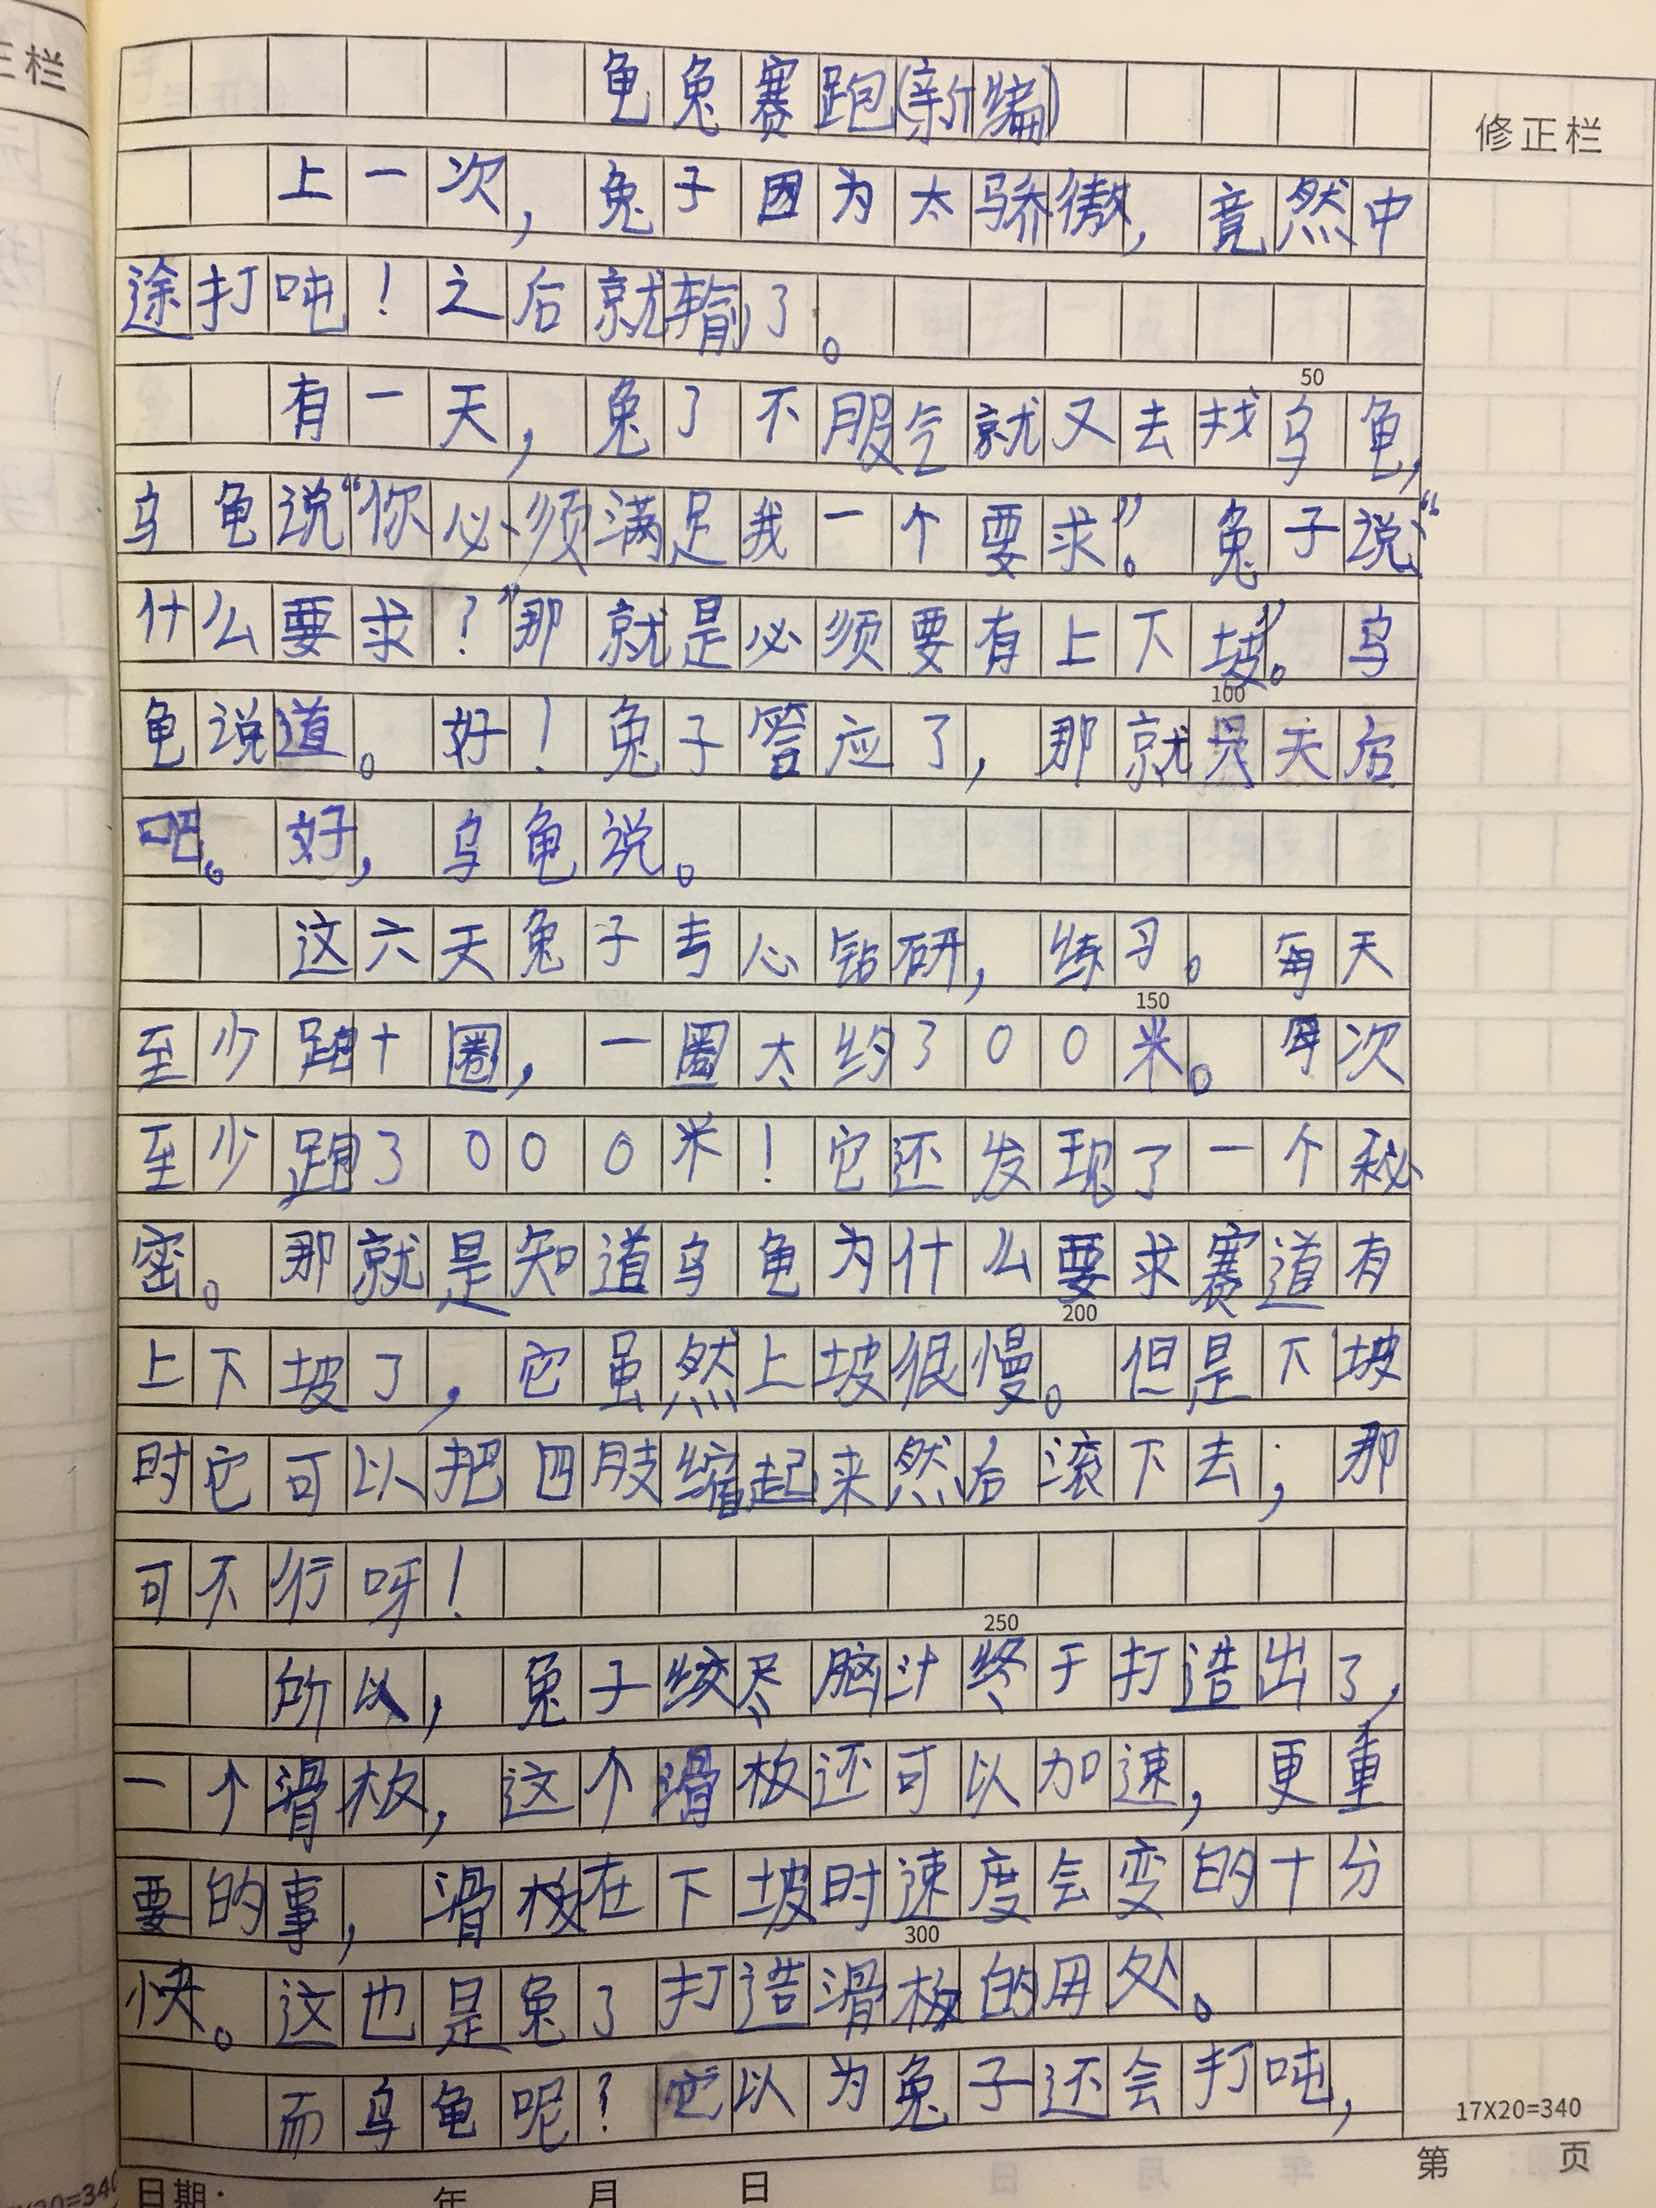 三栏
龟兔赛跑(新编)
修正栏
上一次，兔子因为太骄傲，竟然中
途打吨！之后就输了。
50
有一天，兔了不服气就又去找乌龟，
乌龟说“你必须满足我一个要求”。兔子说“
什么要求？”那就是必须要有上下坡”。乌
100
龟说道。好！兔子答应了，那就天后
吧。好，乌龟说。
这六天兔子专心钻研，练习。每天
150
至少跑十圈，一圈大约300米。每次
至少跑3000米！它还发现了一个秘
密。那就是知道乌龟为什么要求赛道有
200
上下坡了，它虽然上坡很慢。但是下坡
时它可以把四肢缩起来然后滚下去；那
可不行呀！
250
所以，兔子绞尽脑汁终于打造出了，
一个滑板，这个滑板还可以加速，更重
要的事，滑板在下坡时速度会变的十分
300
快。这也是兔了打造滑板的用处。
而乌龟呢？它以为兔子还会打吨，
17X20=340
第 页
日期： 年 月 日